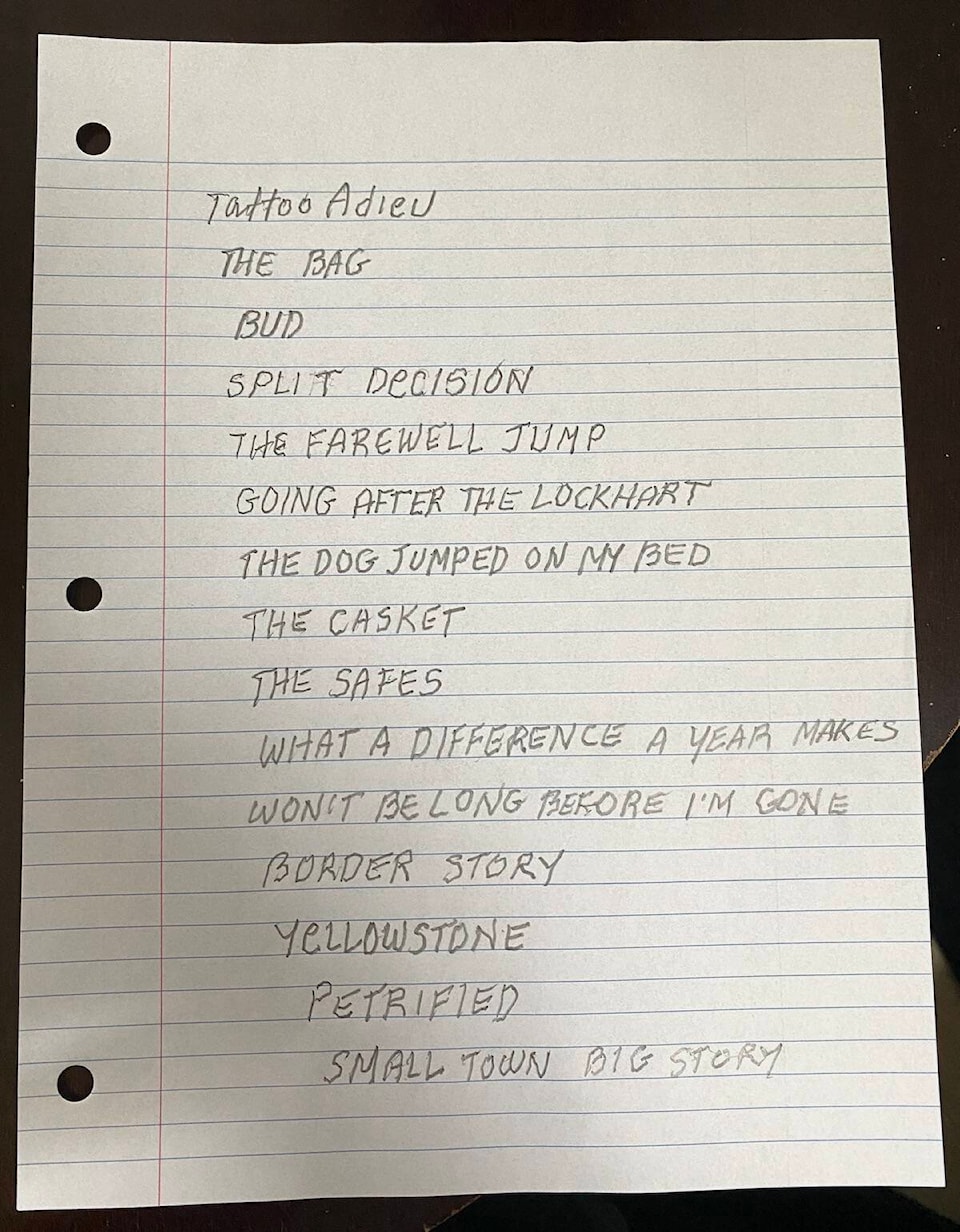 Tattoo Adieu
THE BAG
BUD
SPLIT DeCISION
THE FAREWELL JUMP
GOING AFTER THE LOCKHART
THE DOG JUMPED ON MY BED
THE CASKET
THE SAFES
WHAT A DIFFERENCE A YEAR MAKES
WON'T BE LONG BEFORE I'M GONE
BORDER STORY
YeLLOWSTONE
PETRIFIED
SMALL TOWN BIG STORY